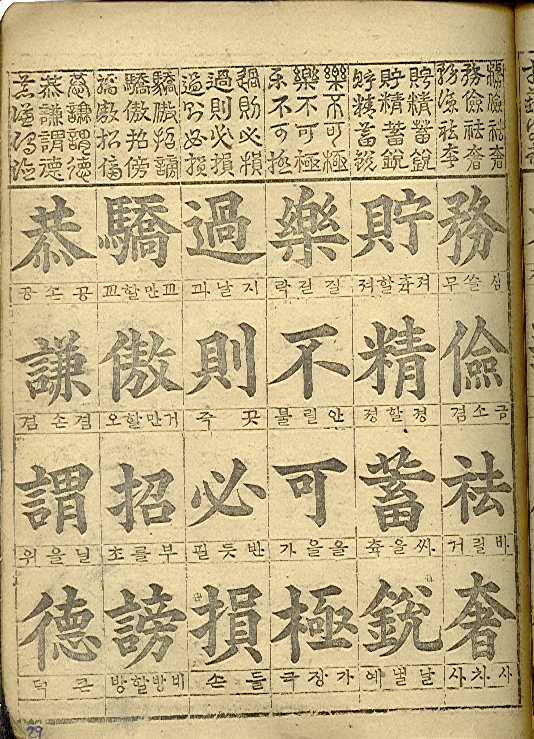 務儉祛奢
務儉祛奢
務儉祛奢
貯精蓄銳
貯精蓄銳
貯精蓄銳
樂不可極
樂不可極
樂不可極
過則必損
過則必損
過則必損
驕傲招謗
驕傲招謗
驕傲招謗
恭謙謂德
恭謙謂德
恭謙謂德
務
심쓸무
儉
금소겸
祛
바릴거
奢
사치사
貯
져츅할져
精
졍할졍
蓄
싸을츅
銳
날낼예
樂
질길락
不
안릴불
可
을을가
極
가장극
過
지날과
則
곳즉
必
반듯필
損
들손
驕
교만할교
傲
거만할오
招
부를초
謗
비방할방
恭
공손공
謙
겸손겸
謂
닐을위
德
큰덕
29